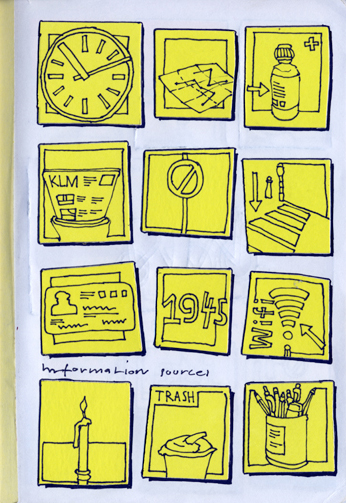 KLM
1945
Wifi
Information sources
TRASH